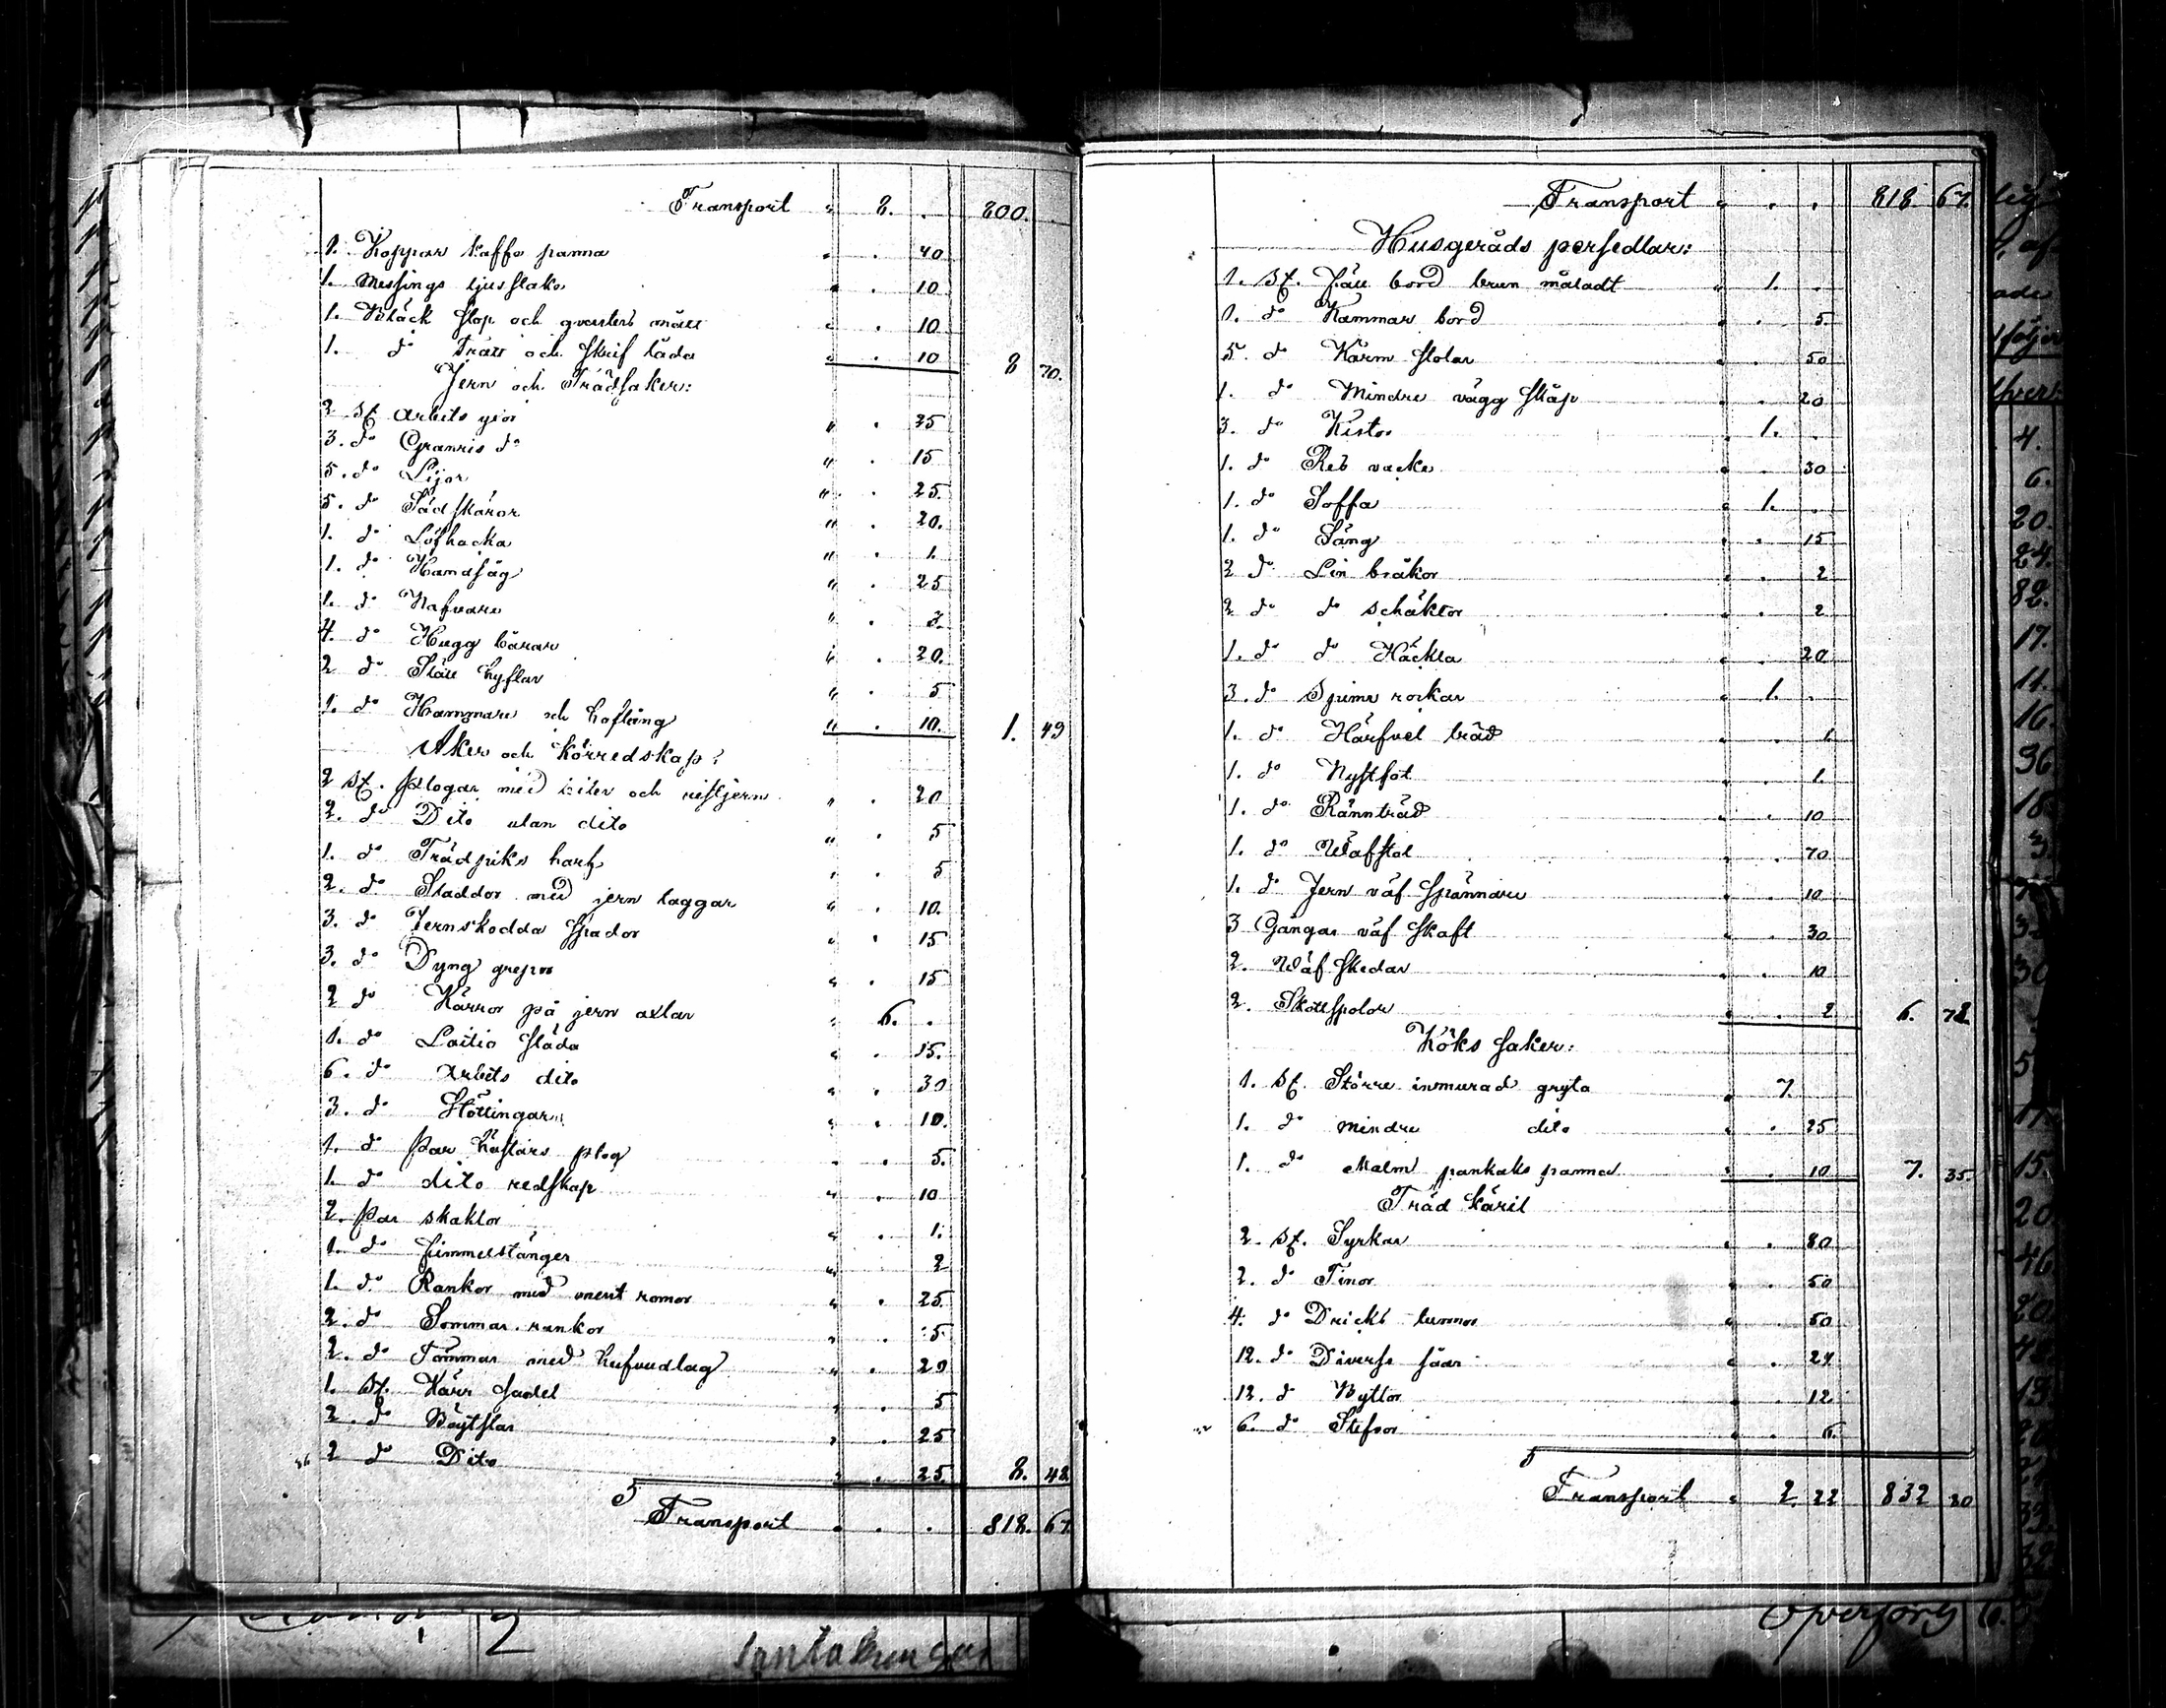 Transport " 8. . 800.
1. Koppar kaffe panna " . 40
1. Messings ljusstake " . 10
1. Bläck stop och qvarters mått " . 10
1. do Tratt och skrif låda " . 10 8 70.
Jern och Trädsaker:
2 st arbets yxor " . 35
3. do Granris do " . 15
5. do Lijar " . 25.
5. do Sädskäror " . 20.
1. do Löfhacka " . 1.
1. do Handsåg " . 25
1. do Nafvare " . 3.
4. do Hugg bänar " . 20.
2 do Slätt hyflar " . 5
1. do Hammare och hoftång " . 10. 1. 49
Åker och Körredskap:
2 st. plogar med bilar och ristjern " . 20
2. do Dito utan dito " . 5
1. do Trädpiks harf " . 5
2. do Sladdor med jern taggar " . 10.
3. do Jernskodda spador " . 15
3. do Dyng grepar " . 15
2 do Kärror på jern axlar " 6. .
1. do Loitio släda " . 15.
6. do Arbets dito " . 30
3. do Stöttingar " . 10.
1. do par hästars plog " . 5.
1. do dito redskap " . 10
2. par skaklor " . 1.
1. do fimmelstänger " . 2
1. do Rankor med romor " . 25.
2. do Sommar rankor " . 5.
2. do Tömmar med hufvudlag " . 20
1. st. Kärr sadel " . 5
2. do Böytslar " . 25
2 do Dito " . 25. 8. 48
Transport " . . 818. 67
Transport " . . 818. 67.
Husgeråds persedlar:
1. st. fäll bord brun måladt " 1. .
1. do Kammar bord " . 5.
5. do Kärm stolar " . 50
1. do Mindre vägg skåp " . 20
3. do Kistor " 1. .
1. do Reb vacka " . 30
1. do Soffa " 1. .
1. do Säng " . 15
2 do Lin bråkor " . 2
2 do do schäktor " . 2
1. do do Häckla " . 20
3. do Spinn rockar " 1. .
1. do Härfvel träd " . 1.
1. do Nystfot " . 1.
1. do Rännträd " . 10
1. do Wäfstol " . 70
1. do Jern väf spännare " . 10
3 Gångar väf skaft " . 30.
2. Wäf skedar " . 10
2. Skottspolar " . 2 6. 78
Köks saker:
1. st. Större inmurad gryta " 7.
1. do mindre dito " . 25
1. do Malm pankaks panna " . 10 7. 35.
Träd käril
2. st. Syrkar " . 80
2. do Tinor " . 50
4. do Dricks tunnor " . 50
12. do Diverse såar " . 24
12. do Byttor " . 12.
6. do Stefvor " . 6.
Transport " 2. 22 832 80